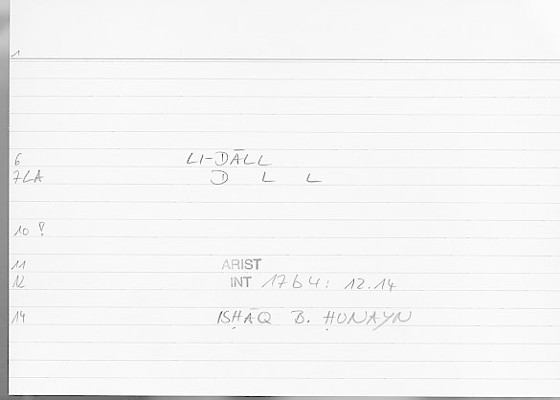 1
6 LI-DĀLL
7LA D L L
10 !
11 ARIST
12 INT 17b4: 12.14
14 ISḤĀQ B. ḤUNAYN